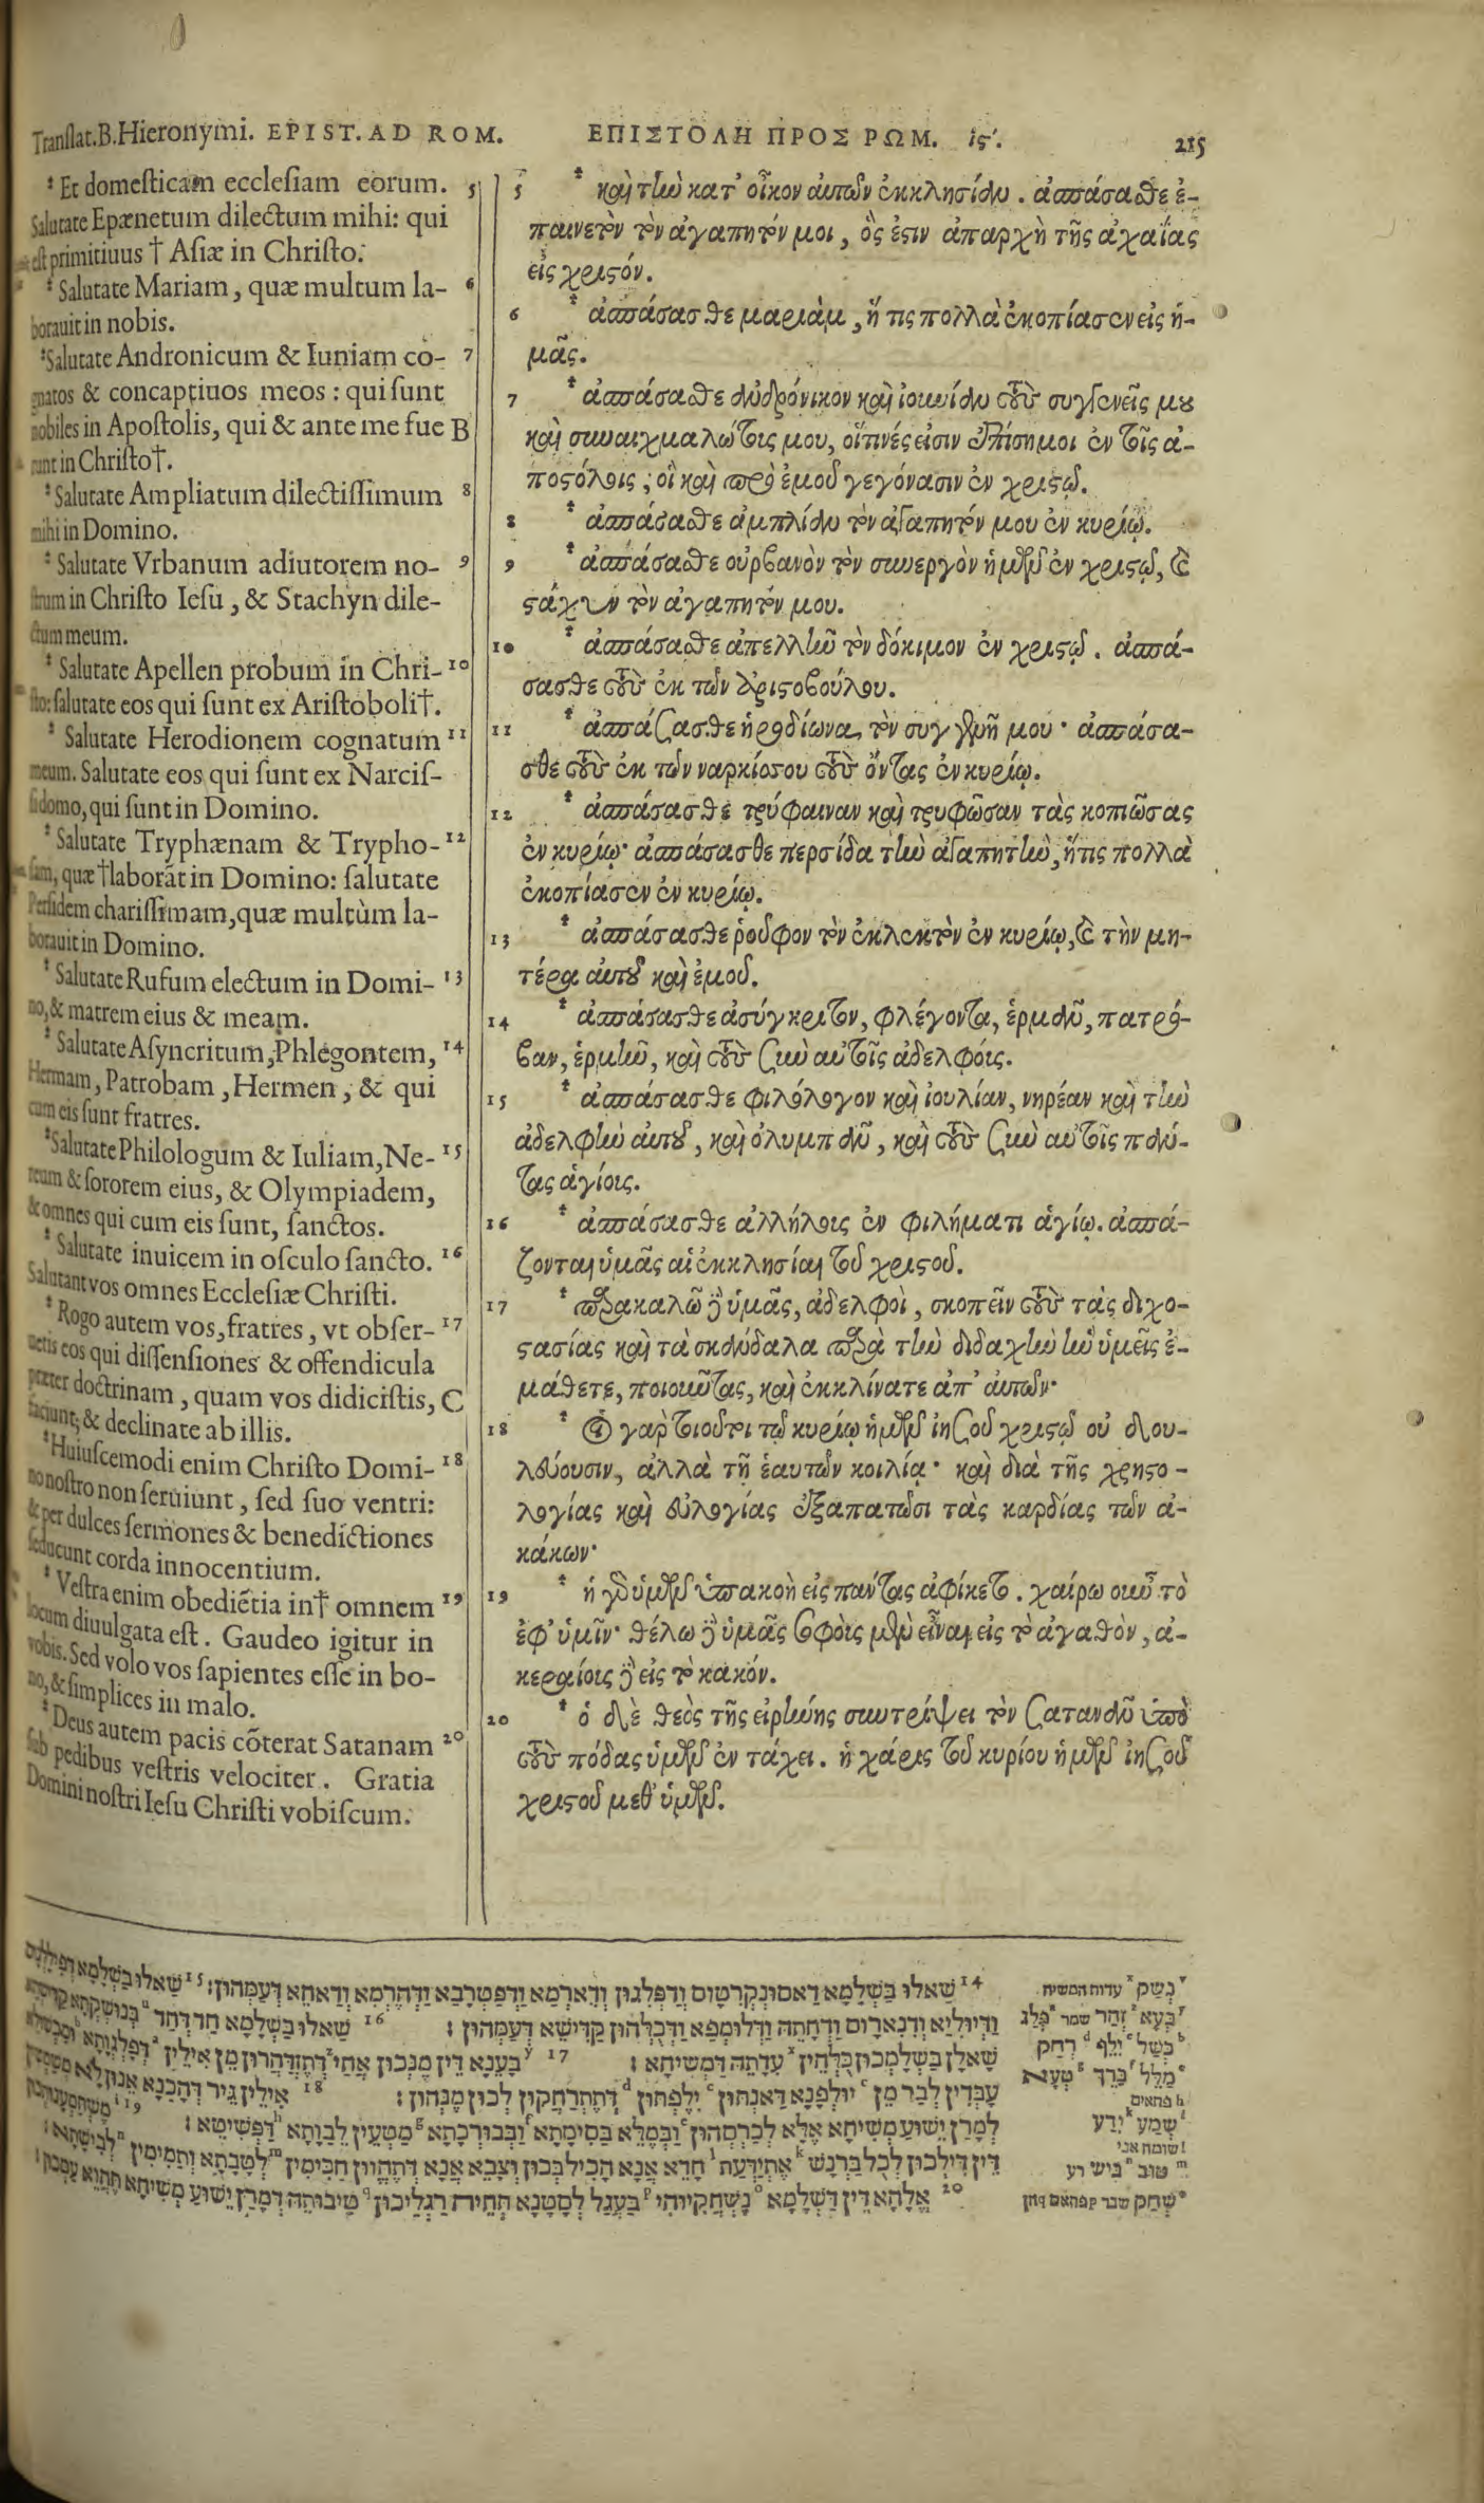 Translat.B.Hieronymi. EPIST. AD ROM.
Et domesticam ecclesiam eorum. 5
Salutate Epænetum dilectum mihi: qui
est primitiuus † Asiæ in Christo.
Salutate Mariam, quæ multum la- 6
borauit in nobis.
Salutate Andronicum & Iuniam co- 7
gnatos & concaptiuos meos: qui sunt
nobiles in Apostolis, qui & ante me fue B
runt in Christo†.
Salutate Ampliatum dilectissimum 8
mihi in Domino.
Salutate Vrbanum adiutorem no- 9
strum in Christo Iesu, & Stachyn dile-
ctum meum.
Salutate Apellen probum in Chri- 10
sto: salutate eos qui sunt ex Aristoboli†.
Salutate Herodionem cognatum 11
meum. Salutate eos qui sunt ex Narcis-
si domo, qui sunt in Domino.
Salutate Tryphænam & Trypho- 12
sam, quæ †laborāt in Domino: salutate
Persidem charissimam, quæ multùm la-
borauit in Domino.
Salutate Rufum electum in Domi- 13
no, & matrem eius & meam.
Salutate Asyncritum, Phlegontem, 14
Hermam, Patrobam, Hermen, & qui
cum eis sunt fratres.
Salutate Philologum & Iuliam, Ne- 15
reum & sororem eius, & Olympiadem,
& omnes qui cum eis sunt, sanctos.
Salutate inuicem in osculo sancto. 16
Salutant vos omnes Ecclesiæ Christi.
Rogo autem vos, fratres, vt obser- 17
uetis eos qui dissensiones & offendicula
præter doctrinam, quam vos didicistis, C
faciunt; & declinate ab illis.
Huiuscemodi enim Christo Domi- 18
no nostro non seruiunt, sed suo ventri:
& per dulces sermones & benedictiones
seducunt corda innocentium.
Vestra enim obediētia in† omnem 19
locum diuulgata est. Gaudeo igitur in
vobis. Sed volo vos sapientes esse in bo-
no, & simplices in malo.
Deus autem pacis cōterat Satanam 20
sub pedibus vestris velociter. Gratia
Domini nostri Iesu Christi vobiscum.
ΕΠΙΣΤΟΛΗ ΠΡΟΣ ΡΩΜ. ις'. 215
5 καὶ τὴν κατ' οἶκον αὐτῶν ἐκκλησίαν. ἀσπάσασθε ἐ-
παινετὸν τὸν ἀγαπητόν μοι, ὅς ἐστιν ἀπαρχὴ τῆς ἀχαΐας
εἰς χριστόν.
6 ἀσπάσασθε μαριὰμ, ἥ τις πολλὰ ἐκοπίασεν εἰς ἡ-
μᾶς.
7 ἀσπάσασθε ἀνδρόνικον καὶ ἰουνίαν τοὺς συγγενεῖς μου
καὶ συναιχμαλώτοις μου, οἵτινές εἰσιν ἐπίσημοι ἐν τοῖς ἀ-
ποστόλοις, οἳ καὶ πρὸ ἐμοῦ γεγόνασιν ἐν χριστῷ.
8 ἀσπάσασθε ἀμπλίαν τὸν ἀγαπητόν μου ἐν κυρίῳ.
9 ἀσπάσασθε οὐρβανὸν τὸν συνεργὸν ἡμῶν ἐν χριστῷ, καὶ
στάχυν τὸν ἀγαπητόν μου.
10 ἀσπάσασθε ἀπελλῆν τὸν δόκιμον ἐν χριστῷ. ἀσπά-
σασθε τοὺς ἐκ τῶν ἀριστοβούλου.
11 ἀσπάσασθε ἡροδίωνα, τὸν συγγενῆ μου· ἀσπάσα-
σθε τοὺς ἐκ τῶν ναρκίσσου τοὺς ὄντας ἐν κυρίῳ.
12 ἀσπάσασθε τρύφαιναν καὶ τρυφῶσαν τὰς κοπιώσας
ἐν κυρίῳ· ἀσπάσασθε περσίδα τὴν ἀγαπητὴν, ἥτις πολλὰ
ἐκοπίασεν ἐν κυρίῳ.
13 ἀσπάσασθε ῥοῦφον τὸν ἐκλεκτὸν ἐν κυρίῳ, καὶ τὴν μη-
τέρα αὐτοῦ καὶ ἐμοῦ.
14 ἀσπάσασθε ἀσύγκριτον, φλέγοντα, ἑρμᾶν, πατρό-
βαν, ἑρμῆν, καὶ τοὺς σὺν αὐτοῖς ἀδελφόις.
15 ἀσπάσασθε φιλόλογον καὶ ἰουλίαν, νηρέαν καὶ τὴν
ἀδελφὴν αὐτοῦ, καὶ ὀλυμπᾶν, καὶ τοὺς σὺν αὐτοῖς πάν-
τας ἁγίοις.
16 ἀσπάσασθε ἀλλήλοις ἐν φιλήματι ἁγίῳ. ἀσπά-
ζονται ὑμᾶς αἱ ἐκκλησίαι τοῦ χριστοῦ.
17 παρακαλῶ δὲ ὑμᾶς, ἀδελφοὶ, σκοπεῖν τοὺς τὰς διχο-
στασίας καὶ τὰ σκάνδαλα παρὰ τὴν διδαχὴν ἣν ὑμεῖς ἐ-
μάθετε, ποιοῦντας, καὶ ἐκκλίνατε ἀπ' αὐτῶν·
18 οἱ γὰρ τοιοῦτοι τῷ κυρίῳ ἡμῶν ἰησοῦ χριστῷ οὐ δου-
λεύουσιν, ἀλλὰ τῇ ἑαυτῶν κοιλίᾳ· καὶ διὰ τῆς χρηστο-
λογίας καὶ εὐλογίας ἐξαπατῶσι τὰς καρδίας τῶν ἀ-
κάκων·
19 ἡ γὰρ ὑμῶν ὑπακοὴ εἰς πάντας ἀφίκετο. χαίρω οὖν τὸ
ἐφ' ὑμῖν· θέλω δὲ ὑμᾶς σοφοὺς μὲν εἶναι εἰς τὸ ἀγαθὸν, ἀ-
κεραίοις δὲ εἰς τὸ κακόν.
20 ὁ δὲ θεὸς τῆς εἰρήνης συντρίψει τὸν σατανᾶν ὑπὸ
τοὺς πόδας ὑμῶν ἐν τάχει. ἡ χάρις τοῦ κυρίου ἡμῶν ἰησοῦ
χριστοῦ μεθ' ὑμῶν.
14 שאלו בשלמא דאסונקרטוס ודפלגון ודארמא ודפטרבא ודהרמא ודאחא דעמהון׃ 15 שאלו בשלמא
ודיוליא ודנארוס ודחתה ודלומפא ודכלהון קדישא דעמהון׃ 16 שאלו בשלמא חד דחד
שאלן בשלמכון כלהין עדתה דמשיחא׃ 17 בענא דין מנכון אחי דתזדהרון מן אילין
עבדין לבר מן יולפנא דאנתון ילפתון דתתרחקון לכון מנהון׃ 18 אילין גיר דהכנא אנון
למרן ישוע משיחא אלא לכרסהון ובמלא בסימתא ובבורכתא מטעין לבותא דפשיטא׃ 19
דין דילכון לכל ברנש אתידעת חדא אנא הכיל בכון וצבא אנא דתהוון חכימין לטבתא ותמימין לבישתא׃
20 אלהא דין דשלמא נשחקיוהי בעגל לסטנא תחית רגליכון טיבותה דמרן ישוע משיחא תהוא עמכון׃
נשק עדות המשיח
בעא זהר שמר פלג
כשל ילף רחק
מלל ברך טעא
פתאים
שמע ידע
שומח אני
טוב ביש רע
שחק שבר